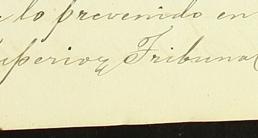 lo prevenido en
uperior Tribunal